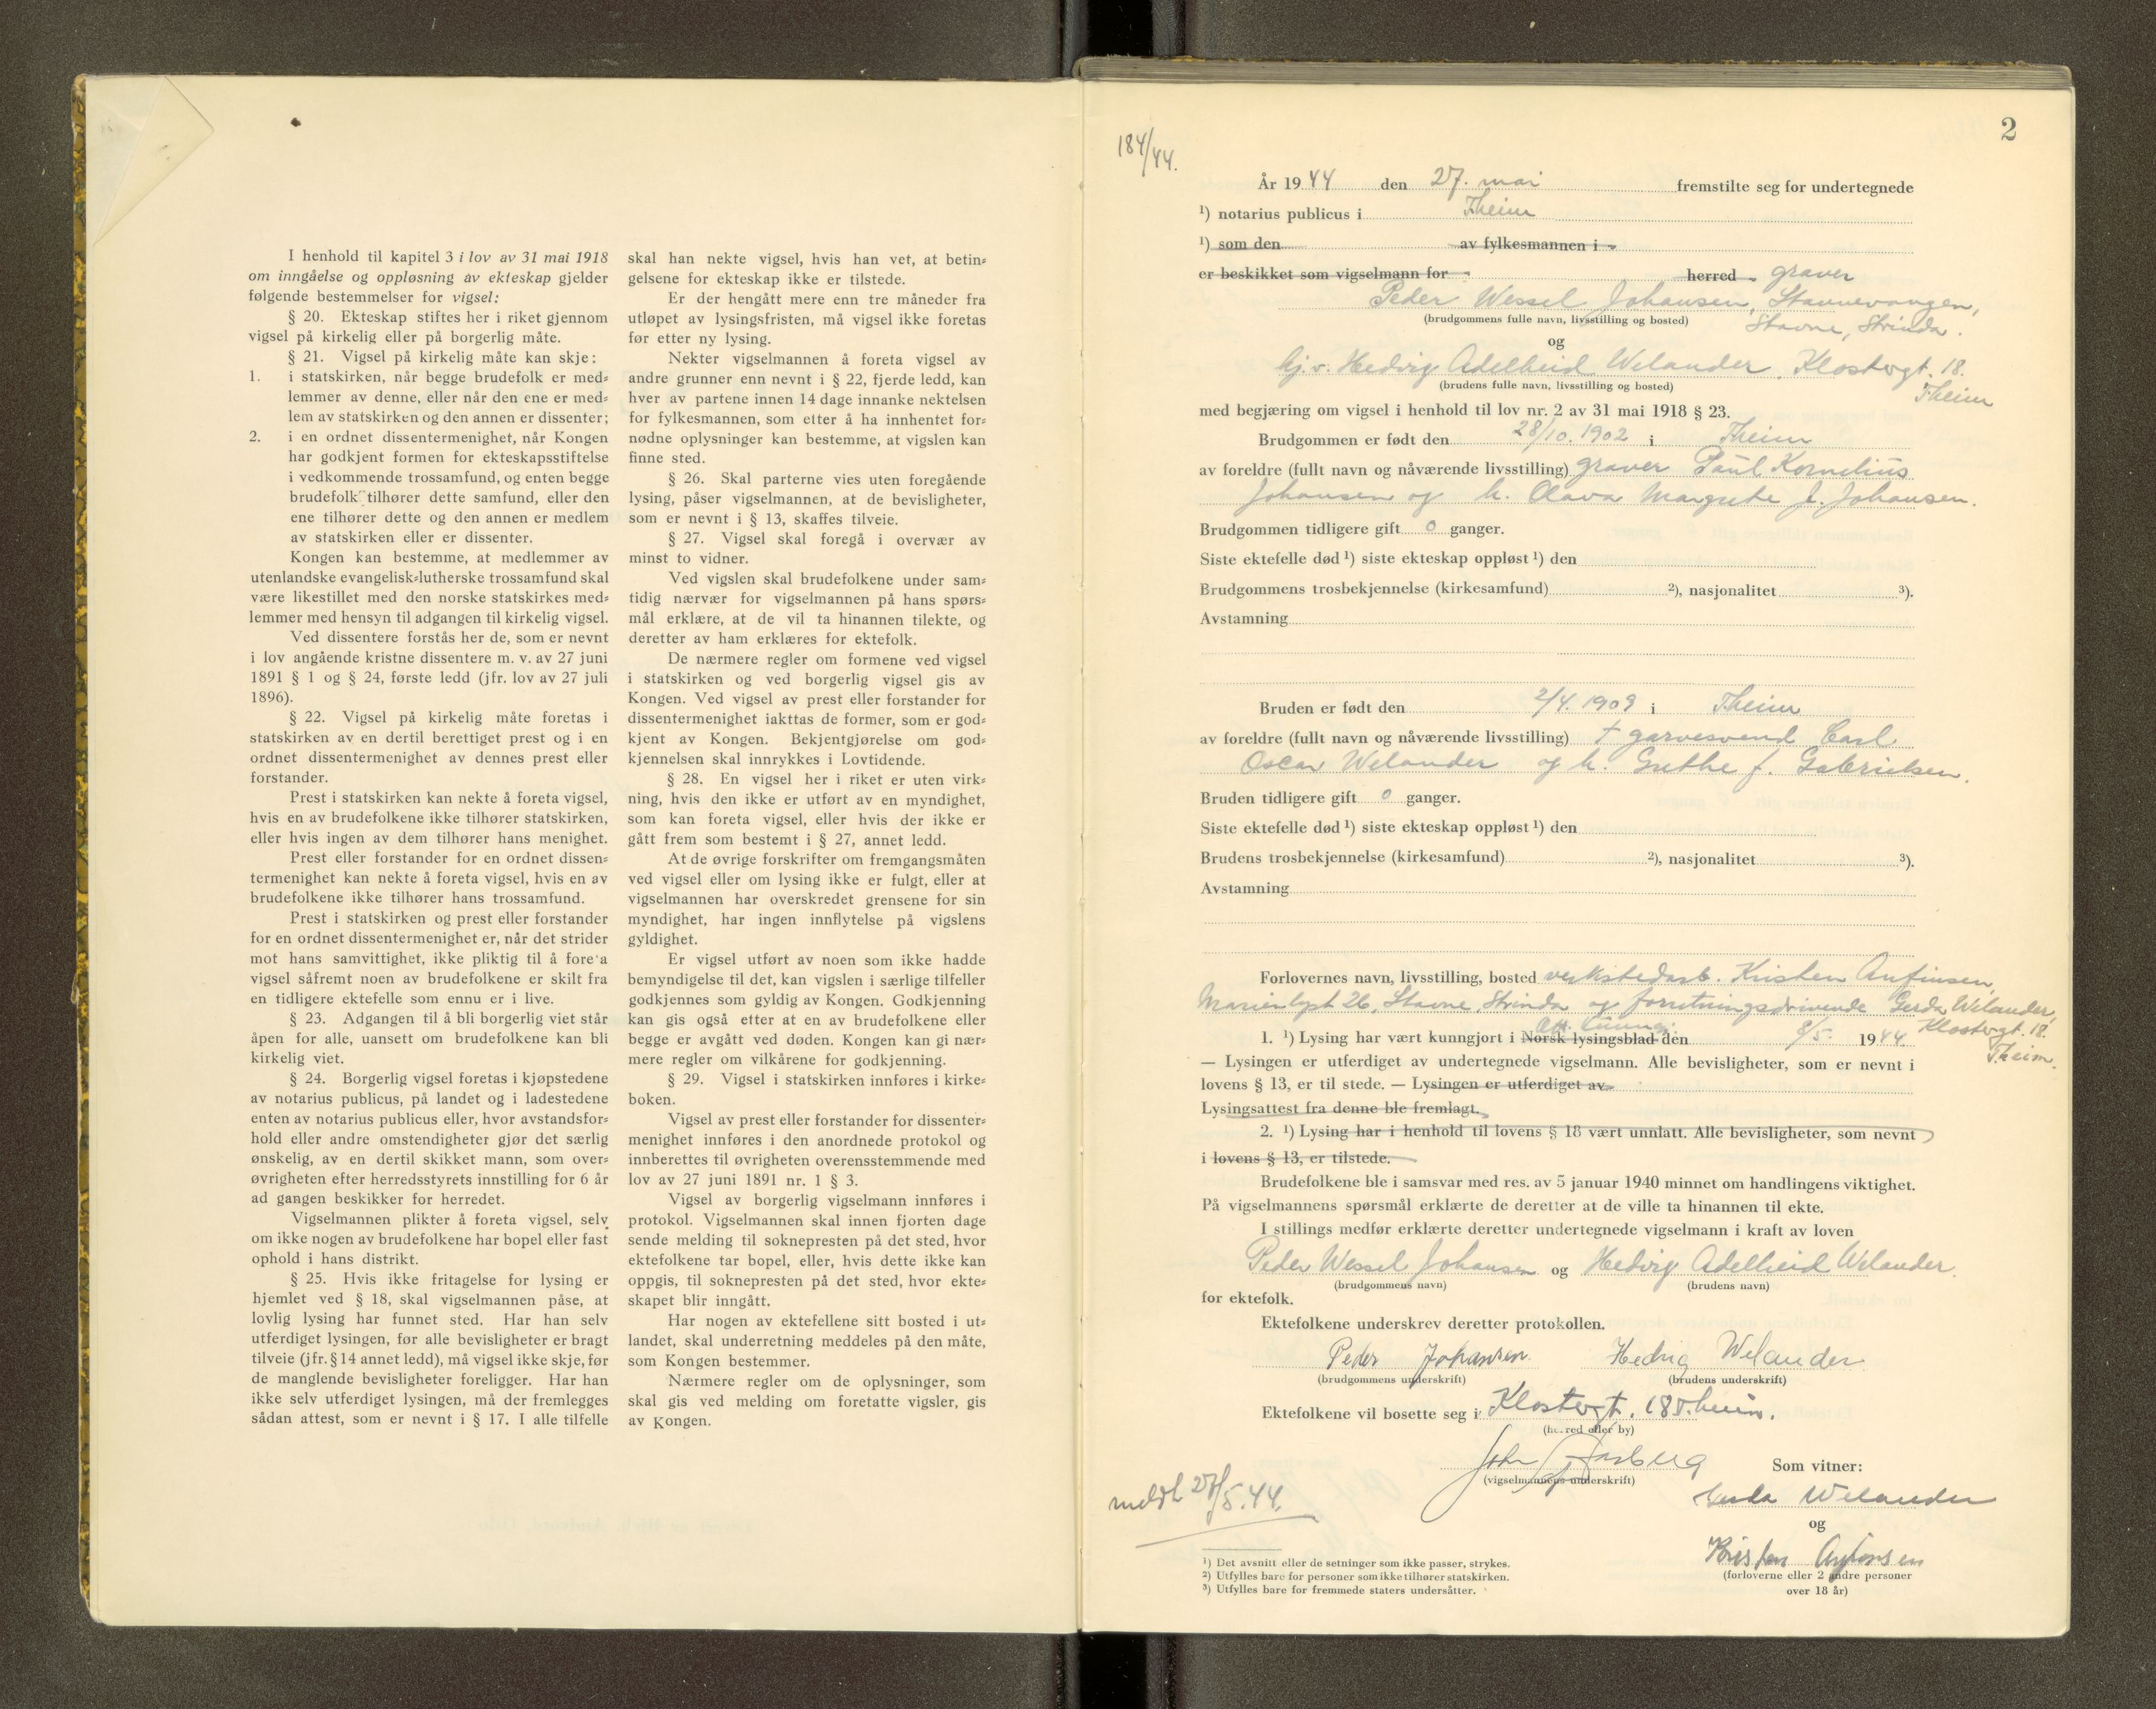 I henhold til kapitel 3 i lov av 31 mai 1918
om inngåelse og oppløsning av ekteskap gjelder
følgende bestemmelser for vigsel:
§ 20. Ekteskap stiftes her i riket gjennom
vigsel på kirkelig eller på borgerlig måte.
§ 21. Vigsel på kirkelig måte kan skje:
1. i statskirken, når begge brudefolk er med-
lemmer av denne, eller når den ene er med-
lem av statskirken og den annen er dissenter;
2. i en ordnet dissentermenighet, når Kongen
har godkjent formen for ekteskapsstiftelse
i vedkommende trossamfund, og enten begge
brudefolk tilhører dette samfund, eller den
ene tilhører dette og den annen er medlem
av statskirken eller er dissenter.
Kongen kan bestemme, at medlemmer av
utenlandske evangelisk-lutherske trossamfund skal
være likestillet med den norske statskirkes med-
lemmer med hensyn til adgangen til kirkelig vigsel.
Ved dissentere forstås her de, som er nevnt
i lov angående kristne dissentere m. v. av 27 juni
1891 § 1 og § 24, første ledd (jfr. lov av 27 juli
1896).
§ 22. Vigsel på kirkelig måte foretas i
statskirken av en dertil berettiget prest og i en
ordnet dissentermenighet av dennes prest eller
forstander.
Prest i statskirken kan nekte å foreta vigsel,
hvis en av brudefolkene ikke tilhører statskirken,
eller hvis ingen av dem tilhører hans menighet.
Prest eller forstander for en ordnet dissen-
termenighet kan nekte å foreta vigsel, hvis en av
brudefolkene ikke tilhører hans trossamfund.
Prest i statskirken og prest eller forstander
for en ordnet dissentermenighet er, når det strider
mot hans samvittighet, ikke pliktig til å foreta
vigsel såfremt noen av brudefolkene er skilt fra
en tidligere ektefelle som ennu er i live.
§ 23. Adgangen til å bli borgerlig viet står
åpen for alle, uansett om brudefolkene kan bli
kirkelig viet.
§ 24. Borgerlig vigsel foretas i kjøpstedene
av notarius publicus, på landet og i ladestedene
enten av notarius publicus eller, hvor avstandsfor-
hold eller andre omstendigheter gjør det særlig
ønskelig, av en dertil skikket mann, som over-
øvrigheten efter herredsstyrets innstilling for 6 år
ad gangen beskikker for herredet.
Vigselmannen plikter å foreta vigsel, selv
om ikke nogen av brudefolkene har bopel eller fast
ophold i hans distrikt.
§ 25. Hvis ikke fritagelse for lysing er
hjemlet ved § 18, skal vigselmannen påse, at
lovlig lysing har funnet sted. Har han selv
utferdiget lysingen, før alle bevisligheter er bragt
tilveie (jfr. § 14 annet ledd), må vigsel ikke skje, før
de manglende bevisligheter foreligger. Har han
ikke selv utferdiget lysingen, må der fremlegges
sådan attest, som er nevnt i § 17. I alle tilfelle
skal han nekte vigsel, hvis han vet, at betin-
gelsene for ekteskap ikke er tilstede.
Er der hengått mere enn tre måneder fra
utløpet av lysingsfristen, må vigsel ikke foretas
før etter ny lysing.
Nekter vigselmannen å foreta vigsel av
andre grunner enn nevnt i § 22, fjerde ledd, kan
hver av partene innen 14 dage innanke nektelsen
for fylkesmannen, som etter å ha innhentet for-
nødne oplysninger kan bestemme, at vigslen kan
finne sted.
§ 26. Skal parterne vies uten foregående
lysing, påser vigselmannen, at de bevisligheter,
som er nevnt i § 13, skaffes tilveie.
§ 27. Vigsel skal foregå i overvær av
minst to vidner.
Ved vigslen skal brudefolkene under sam-
tidig nærvær for vigselmannen på hans spørs-
mål erklære, at de vil ta hinannen tilekte, og
deretter av ham erklæres for ektefolk.
De nærmere regler om formene ved vigsel
i statskirken og ved borgerlig vigsel gis av
Kongen. Ved vigsel av prest eller forstander for
dissentermenighet iakttas de former, som er god-
kjent av Kongen. Bekjentgjørelse om god-
kjennelsen skal innrykkes i Lovtidende.
§ 28. En vigsel her i riket er uten virk-
ning, hvis den ikke er utført av en myndighet,
som kan foreta vigsel, eller hvis der ikke er
gått frem som bestemt i § 27, annet ledd.
At de øvrige forskrifter om fremgangsmåten
ved vigsel eller om lysing ikke er fulgt, eller at
vigselmannen har overskredet grensene for sin
myndighet, har ingen innflytelse på vigslens
gyldighet.
Er vigsel utført av noen som ikke hadde
bemyndigelse til det, kan vigslen i særlige tilfeller
godkjennes som gyldig av Kongen. Godkjenning
kan gis også etter at en av brudefolkene eller
begge er avgått ved døden. Kongen kan gi nær-
mere regler om vilkårene for godkjenning.
§ 29. Vigsel i statskirken innføres i kirke-
boken.
Vigsel av prest eller forstander for dissenter-
menighet innføres i den anordnede protokol og
innberettes til øvrigheten overensstemmende med
lov av 27 juni 1891 nr. 1 § 3.
Vigsel av borgerlig vigselmann innføres i
protokol. Vigselmannen skal innen fjorten dage
sende melding til soknepresten på det sted, hvor
ektefolkene tar bopel, eller, hvis dette ikke kan
oppgis, til soknepresten på det sted, hvor ekte-
skapet blir inngått.
Har nogen av ektefellene sitt bosted i ut-
landet, skal underretning meddeles på den måte,
som Kongen bestemmer.
Nærmere regler om de oplysninger, som
skal gis ved melding om foretatte vigsler, gis
av Kongen.
2
184/44.
År 1944 den 27. mai fremstilte seg for undertegnede
¹) notarius publicus i Theim
¹) som den av fylkesmannen i
er beskikket som vigselmann for herred graver
Peder Wessel Johansen, Stavnevangen,
(brudgommens fulle navn, livsstilling og bosted) Stavne, Strinda.
og
hj.v. Hedvig Adelheid Welander, Klostergt. 18.
(brudens fulle navn, livsstilling og bosted) Theim
med begjæring om vigsel i henhold til lov nr. 2 av 31 mai 1918 § 23.
Brudgommen er født den 28/10. 1902 i Theim
av foreldre (fullt navn og nåværende livsstilling) graver Paul Kornelius
Johansen og h. Olava Margrete f. Johansen.
Brudgommen tidligere gift 0 ganger.
Siste ektefelle død ¹) siste ekteskap oppløst ¹) den
Brudgommens trosbekjennelse (kirkesamfund) ²), nasjonalitet ³).
Avstamning
Bruden er født den 2/4. 1909 i Theim
av foreldre (fullt navn og nåværende livsstilling) † garvesvend Carl
Oscar Welander og h. Grethe f. Gabrielsen.
Bruden tidligere gift 0 ganger.
Siste ektefelle død ¹) siste ekteskap oppløst ¹) den
Brudens trosbekjennelse (kirkesamfund) ²), nasjonalitet ³).
Avstamning
Forlovernes navn, livsstilling, bosted verkstedarb. Kristen Anfinsen,
Marienlyst 26, Stavne, Strinda og forretningsdrivende Gerda Welander,
Klostergt. 18. Theim.
1. ¹) Lysing har vært kunngjort i Norsk lysingsblad den 8/5. 1944.
— Lysingen er utferdiget av undertegnede vigselmann. Alle bevisligheter, som er nevnt i
lovens § 13, er til stede. — Lysingen er utferdiget av
Lysingsattest fra denne ble fremlagt.
2. ¹) Lysing har i henhold til lovens § 18 vært unnlatt. Alle bevisligheter, som nevnt
i lovens § 13, er tilstede.
Brudefolkene ble i samsvar med res. av 5 januar 1940 minnet om handlingens viktighet.
På vigselmannens spørsmål erklærte de deretter at de ville ta hinannen til ekte.
I stillings medfør erklærte deretter undertegnede vigselmann i kraft av loven
Peder Wessel Johansen og Hedvig Adelheid Welander.
(brudgommens navn) (brudens navn)
for ektefolk.
Ektefolkene underskrev deretter protokollen.
Peder Johansen Hedvig Welander
(brudgommens underskrift) (brudens underskrift)
Ektefolkene vil bosette seg i Klostergt. 18 Theim.
(herred eller by)
John Aasberg
(vigselmannens underskrift) Som vitner:
Gerda Welander
og
Kristen Anfinsen
(forloverne eller 2 andre personer
over 18 år)
meldt 27/5.44.
¹) Det avsnitt eller de setninger som ikke passer, strykes.
²) Utfylles bare for personer som ikke tilhører statskirken.
³) Utfylles bare for fremmede staters undersåtter.